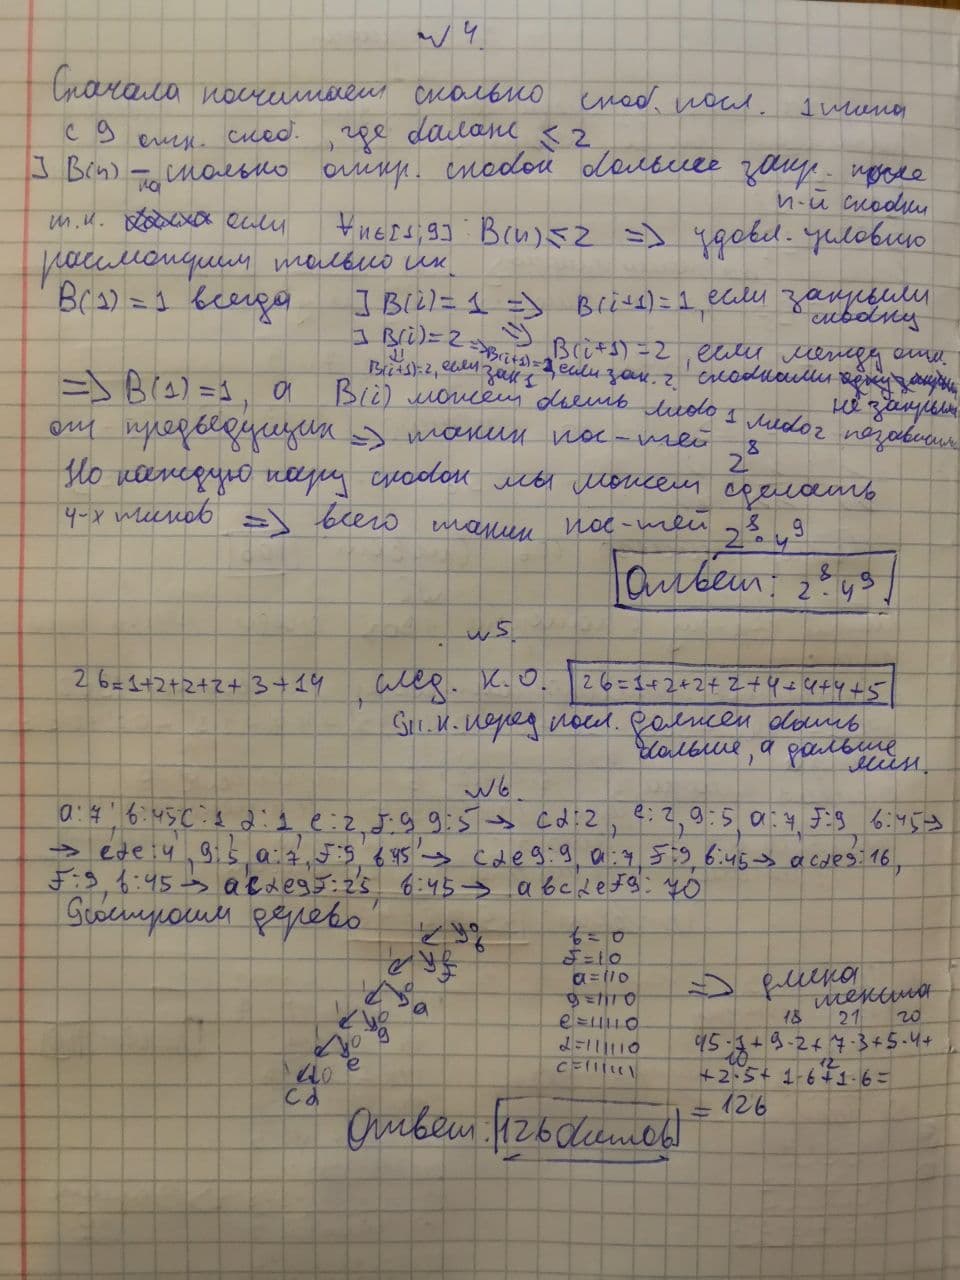 №4.
Сначала посчитаем сколько скоб. посл. 1 типа
с 9 откр. скоб., где баланс ≤ 2
] B(n) – на сколько откр. скобок больше закр. после
n-й скобки
т.к. если ∀n∈[1;9]: B(n)≤2 => удовл. условию
рассмотрим только их.
B(1)=1 всегда ] B(i)=1 => B(i+1)=1, если закрыли
скобку
] B(i)=2 => B(i+1)=2, если между откр.
B(i+1)=2, если зак. 1, если зак. 2 скобками
не закрыли
=> B(1)=1, а B(i) может быть либо 1 либо 2 независим
от предыдущих => таких пос-тей 2⁸
Но каждую пару скобок мы можем сделать
4-х типов => всего таких пос-тей 2⁸·4⁹
Ответ: 2⁸·4⁹.
№5.
26=1+2+2+2+3+14, след. К.О. 26=1+2+2+2+4+4+4+5
т.к. перед посл. должен быть
больше, а дальше
мин.
№6.
a:7, b:45, c:1, d:1, e:2, f:9 g:5 → cd:2, e:2, g:5, a:7, f:9, b:45→
→ cde:4, g:5, a:7, f:9, b:45 → cdeg:9, a:7, f:9, b:45→ acdeg:16,
f:9, b:45→ acdegf:25, b:45→ abcdefg:70
Построим дерево
b= 0
f=10
a=110
g=1110
e=11110
d=111110
c=111111
=> длина
текста
18 21 20
45·1+9·2+7·3+5·4+
10 12
+2·5+1·6+1·6=
=126
Ответ: 126 битов